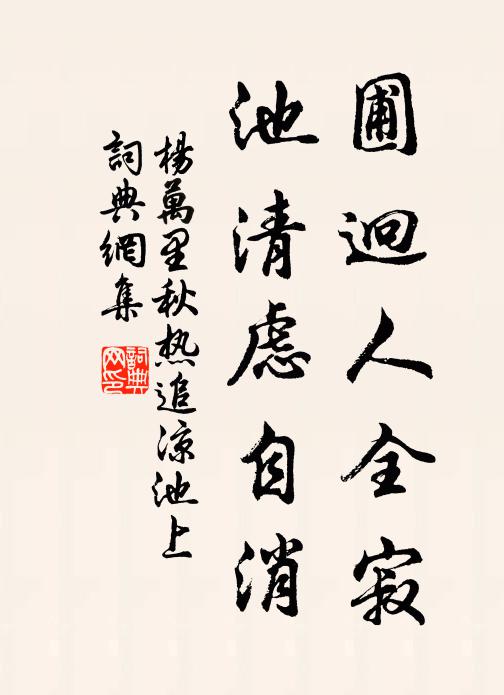 圃迥人全寂
池清慮自消
楊萬里秋热追凉池上
詞典網集
詞典網印